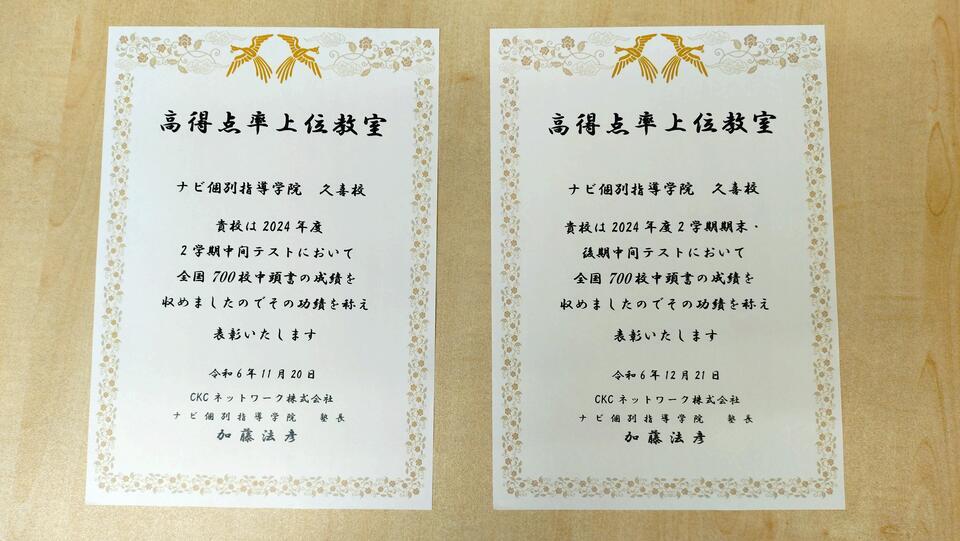 高得点率上位教室
ナビ個別指導学院 久喜校
貴校は2024年度
2学期中間テストにおいて
全国700校中頭書の成績を
収めましたのでその功績を称え
表彰いたします
令和6年11月20日
CKCネットワーク株式会社
ナビ個別指導学院 塾長
加藤法彦
高得点率上位教室
ナビ個別指導学院 久喜校
貴校は2024年度2学期期末・
後期中間テストにおいて
全国700校中頭書の成績を
収めましたのでその功績を称え
表彰いたします
令和6年12月21日
CKCネットワーク株式会社
ナビ個別指導学院 塾長
加藤法彦